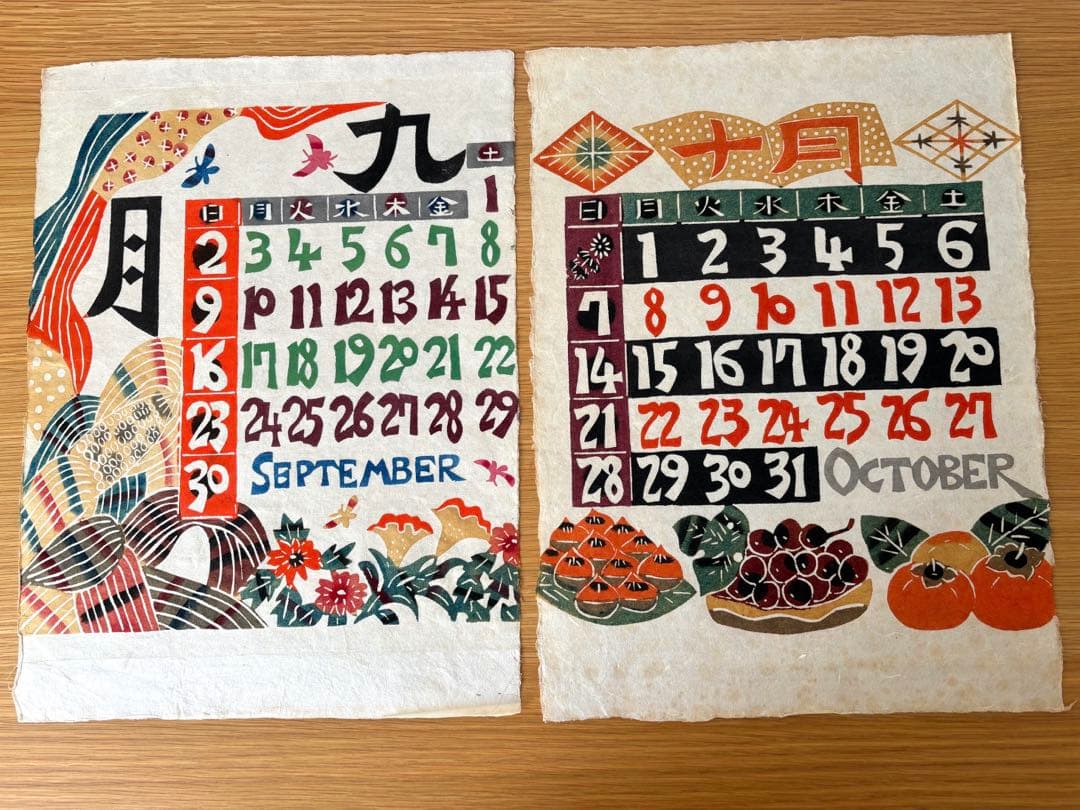 九
月
土
日 月 火 水 木 金 1
2 3 4 5 6 7 8
9 10 11 12 13 14 15
16 17 18 19 20 21 22
23 24 25 26 27 28 29
30 SEPTEMBER
十月
日 月 火 水 木 金 土
1 2 3 4 5 6
7 8 9 10 11 12 13
14 15 16 17 18 19 20
21 22 23 24 25 26 27
28 29 30 31 OCTOBER